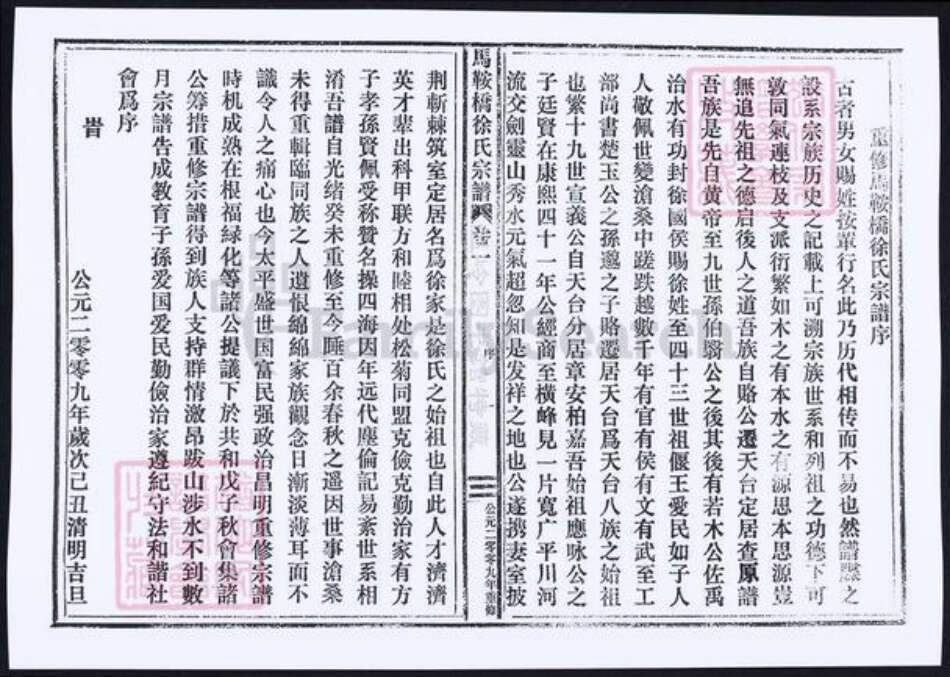 重修馬鞍橋徐氏宗譜序
古者男女賜姓按輩行名此乃历代相传而不易也然譜牒之
設系宗族历史之記載上可溯宗族世系和列祖之功德下可
敦同氣連枝及支派衍繁如木之有本水之有源思本思源豈
無追先祖之德启後人之道吾族自賂公遷天台定居查原譜
吾族是先自黄帝至九世孫伯翳公之後其後有若木公佐禹
治水有功封徐國侯賜徐姓至四十三世祖偃王爱民如子人
人敬佩世變滄桑中蹉跌越數千年有官有侯有文有武至工
部尚書楚玉公之孫邈之子賂遷居天台爲天台八族之始祖
也繁十九世宣義公自天台分居章安柏嘉吾始祖應咏公之
子廷賢在康熙四十一年公經商至横峰見一片寬广平川河
流交劍靈山秀水元氣超忽知是发祥之地也公遂携妻室披
馬鞍橋徐氏宗譜 卷一
序
一
公元二零零九年重修
荆斬棘筑室定居名爲徐家是徐氏之始祖也自此人才濟濟
英才辈出科甲联方和睦相处松菊同盟克儉克勤治家有方
子孝孫賢佩受称赞名操四海因年远代塵倫記易紊世系相
淆吾譜自光绪癸未重修至今睡百余春秋之遥因世事滄桑
未得重輯臨同族之人遺恨綿綿家族觀念日漸淡薄耳面不
識令人之痛心也今太平盛世国富民强政治昌明重修宗譜
時机成熟在根福緑化等諸公提議下於共和戊子秋會集諸
公筹措重修宗譜得到族人支持群情激昂跋山涉水不到數
月宗譜告成教育子孫爱国爱民勤儉治家遵紀守法和諧社
會爲序
旹
公元二零零九年歲次己丑清明吉旦
FamilySearch